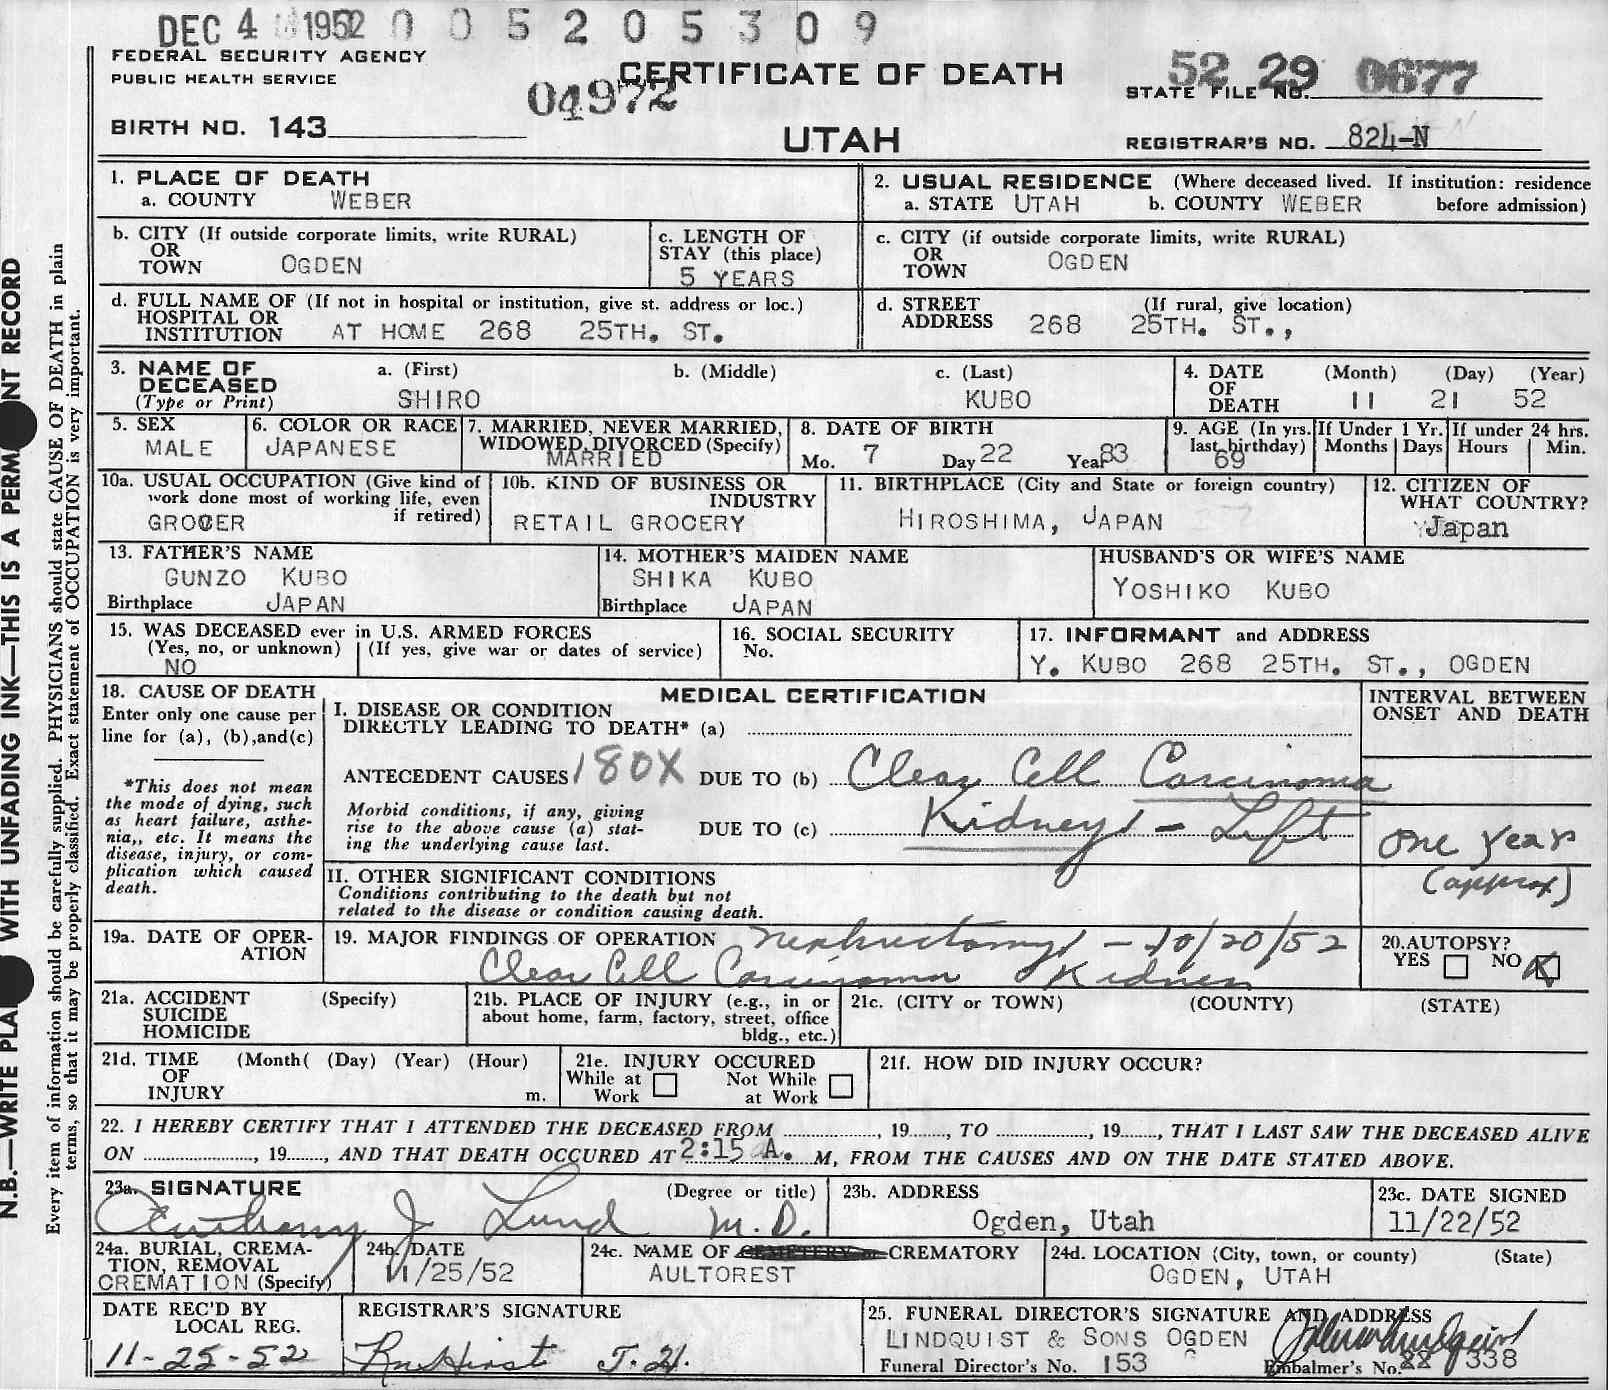 DEC 4 1952 0 0 5 2 0 5 3 0 9
FEDERAL SECURITY AGENCY
PUBLIC HEALTH SERVICE
CERTIFICATE OF DEATH
04972
UTAH
52 29 0677
STATE FILE NO.
BIRTH NO. 143
REGISTRAR'S NO. 824-N
1. PLACE OF DEATH
a. COUNTY WEBER
2. USUAL RESIDENCE (Where deceased lived. If institution: residence
a. STATE UTAH b. COUNTY WEBER before admission)
b. CITY (If outside corporate limits, write RURAL)
OR
TOWN OGDEN
c. LENGTH OF
STAY (this place)
5 YEARS
c. CITY (if outside corporate limits, write RURAL)
OR
TOWN OGDEN
d. FULL NAME OF (If not in hospital or institution, give st. address or loc.)
HOSPITAL OR
INSTITUTION AT HOME 268 25TH. ST.
d. STREET (If rural, give location)
ADDRESS 268 25TH. ST.,
3. NAME OF
DECEASED
(Type or Print)
a. (First) b. (Middle) c. (Last)
SHIRO KUBO
4. DATE (Month) (Day) (Year)
OF
DEATH 11 21 52
5. SEX
MALE
6. COLOR OR RACE
JAPANESE
7. MARRIED, NEVER MARRIED,
WIDOWED, DIVORCED (Specify)
MARRIED
8. DATE OF BIRTH
Mo. 7 Day 22 Year 83
9. AGE (In yrs.
last birthday)
69
If Under 1 Yr.
Months Days
If under 24 hrs.
Hours Min.
10a. USUAL OCCUPATION (Give kind of
work done most of working life, even
if retired)
GROCER
10b. KIND OF BUSINESS OR
INDUSTRY
RETAIL GROCERY
11. BIRTHPLACE (City and State or foreign country)
HIROSHIMA, JAPAN
12. CITIZEN OF
WHAT COUNTRY?
Japan
13. FATHER'S NAME
GUNZO KUBO
Birthplace JAPAN
14. MOTHER'S MAIDEN NAME
SHIKA KUBO
Birthplace JAPAN
HUSBAND'S OR WIFE'S NAME
YOSHIKO KUBO
15. WAS DECEASED ever in U.S. ARMED FORCES
(Yes, no, or unknown) (If yes, give war or dates of service)
NO
16. SOCIAL SECURITY
No.
17. INFORMANT and ADDRESS
Y. KUBO 268 25TH. ST., OGDEN
18. CAUSE OF DEATH
Enter only one cause per
line for (a), (b),and(c)
*This does not mean
the mode of dying, such
as heart failure, asthe-
nia,, etc. It means the
disease, injury, or com-
plication which caused
death.
MEDICAL CERTIFICATION
I. DISEASE OR CONDITION
DIRECTLY LEADING TO DEATH* (a)
ANTECEDENT CAUSES 180X DUE TO (b) Clear Cell Carcinoma
Morbid conditions, if any, giving
rise to the above cause (a) stat-
ing the underlying cause last.
DUE TO (c) Kidney - Left
INTERVAL BETWEEN
ONSET AND DEATH
One year
(approx)
II. OTHER SIGNIFICANT CONDITIONS
Conditions contributing to the death but not
related to the disease or condition causing death.
19a. DATE OF OPER-
ATION
19. MAJOR FINDINGS OF OPERATION Nephrectomy - 10/20/52
Clear Cell Carcinoma Kidney
20.AUTOPSY?
YES NO X
21a. ACCIDENT (Specify)
SUICIDE
HOMICIDE
21b. PLACE OF INJURY (e.g., in or
about home, farm, factory, street, office
bldg., etc.)
21c. (CITY or TOWN) (COUNTY) (STATE)
21d. TIME (Month( (Day) (Year) (Hour)
OF
INJURY m.
21e. INJURY OCCURED
While at Work Not While at Work
21f. HOW DID INJURY OCCUR?
22. I HEREBY CERTIFY THAT I ATTENDED THE DECEASED FROM , 19 , TO , 19 , THAT I LAST SAW THE DECEASED ALIVE
ON , 19 , AND THAT DEATH OCCURED AT 2:15 A. M, FROM THE CAUSES AND ON THE DATE STATED ABOVE.
23a. SIGNATURE (Degree or title)
Anthony J Lund M.D.
23b. ADDRESS
Ogden, Utah
23c. DATE SIGNED
11/22/52
24a. BURIAL, CREMA-
TION, REMOVAL
CREMATION (Specify)
24b. DATE
11/25/52
24c. NAME OF CEMETERY or CREMATORY
AULTOREST
24d. LOCATION (City, town, or county) (State)
OGDEN, UTAH
DATE REC'D BY
LOCAL REG.
11-25-52
REGISTRAR'S SIGNATURE
25. FUNERAL DIRECTOR'S SIGNATURE AND ADDRESS
LINDQUIST & SONS OGDEN
Funeral Director's No. 153 Embalmer's No. 338
N.B.—WRITE PLA WITH UNFADING INK—THIS IS A PERMA NT RECORD
Every item of information should be carefully supplied. PHYSICIANS should state CAUSE OF DEATH in plain
terms, so that it may be properly classified. Exact statement of OCCUPATION is very important.